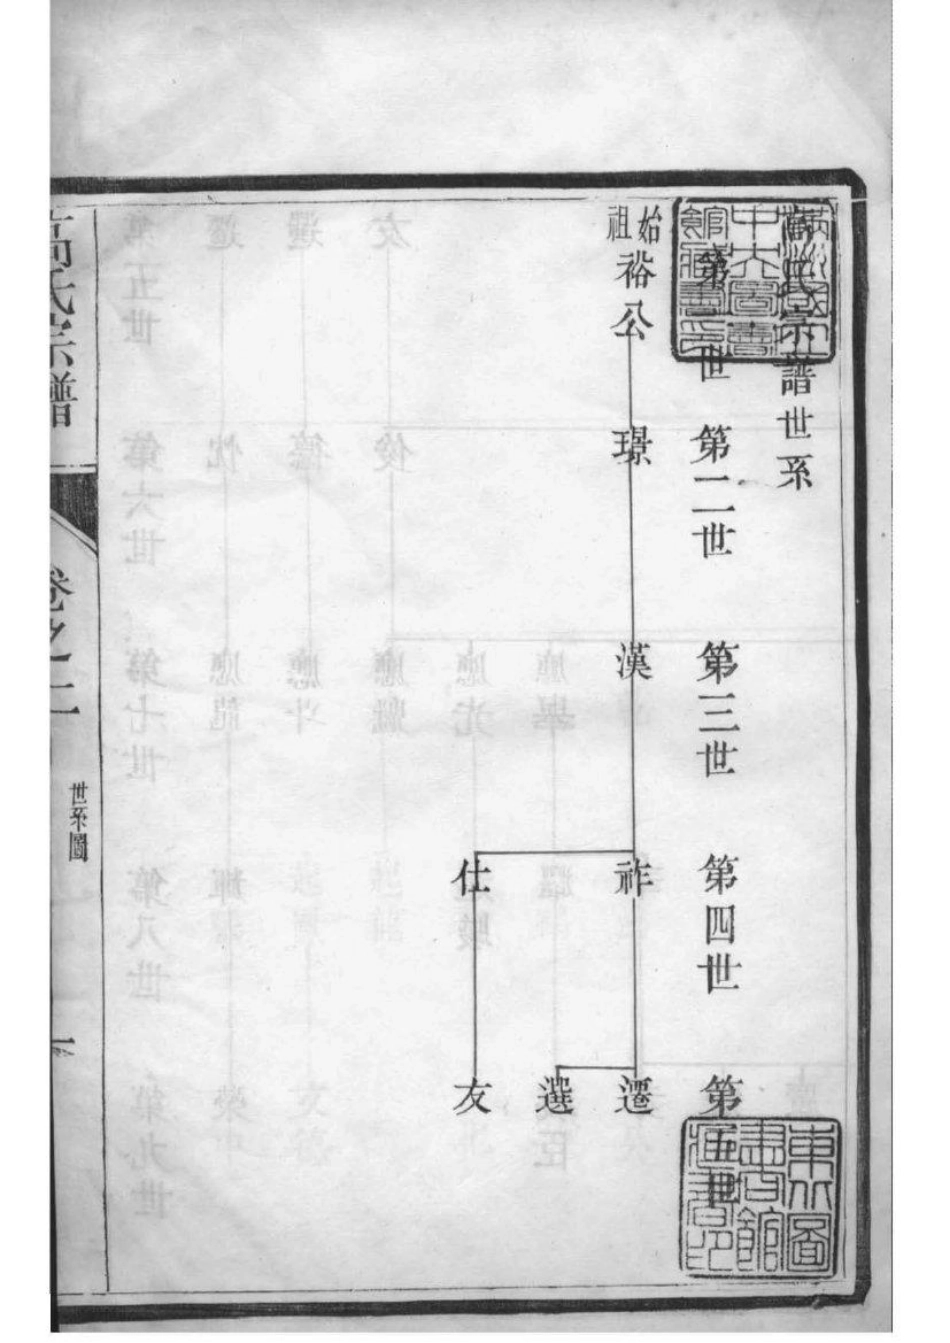 氏宗譜世系
第一世
第二世
第三世
第四世
第五世
始祖
裕公
璟
漢
祚
仕
遷
選
友
高氏宗譜
卷之二
世系圖
一
東北圖書館藏書印